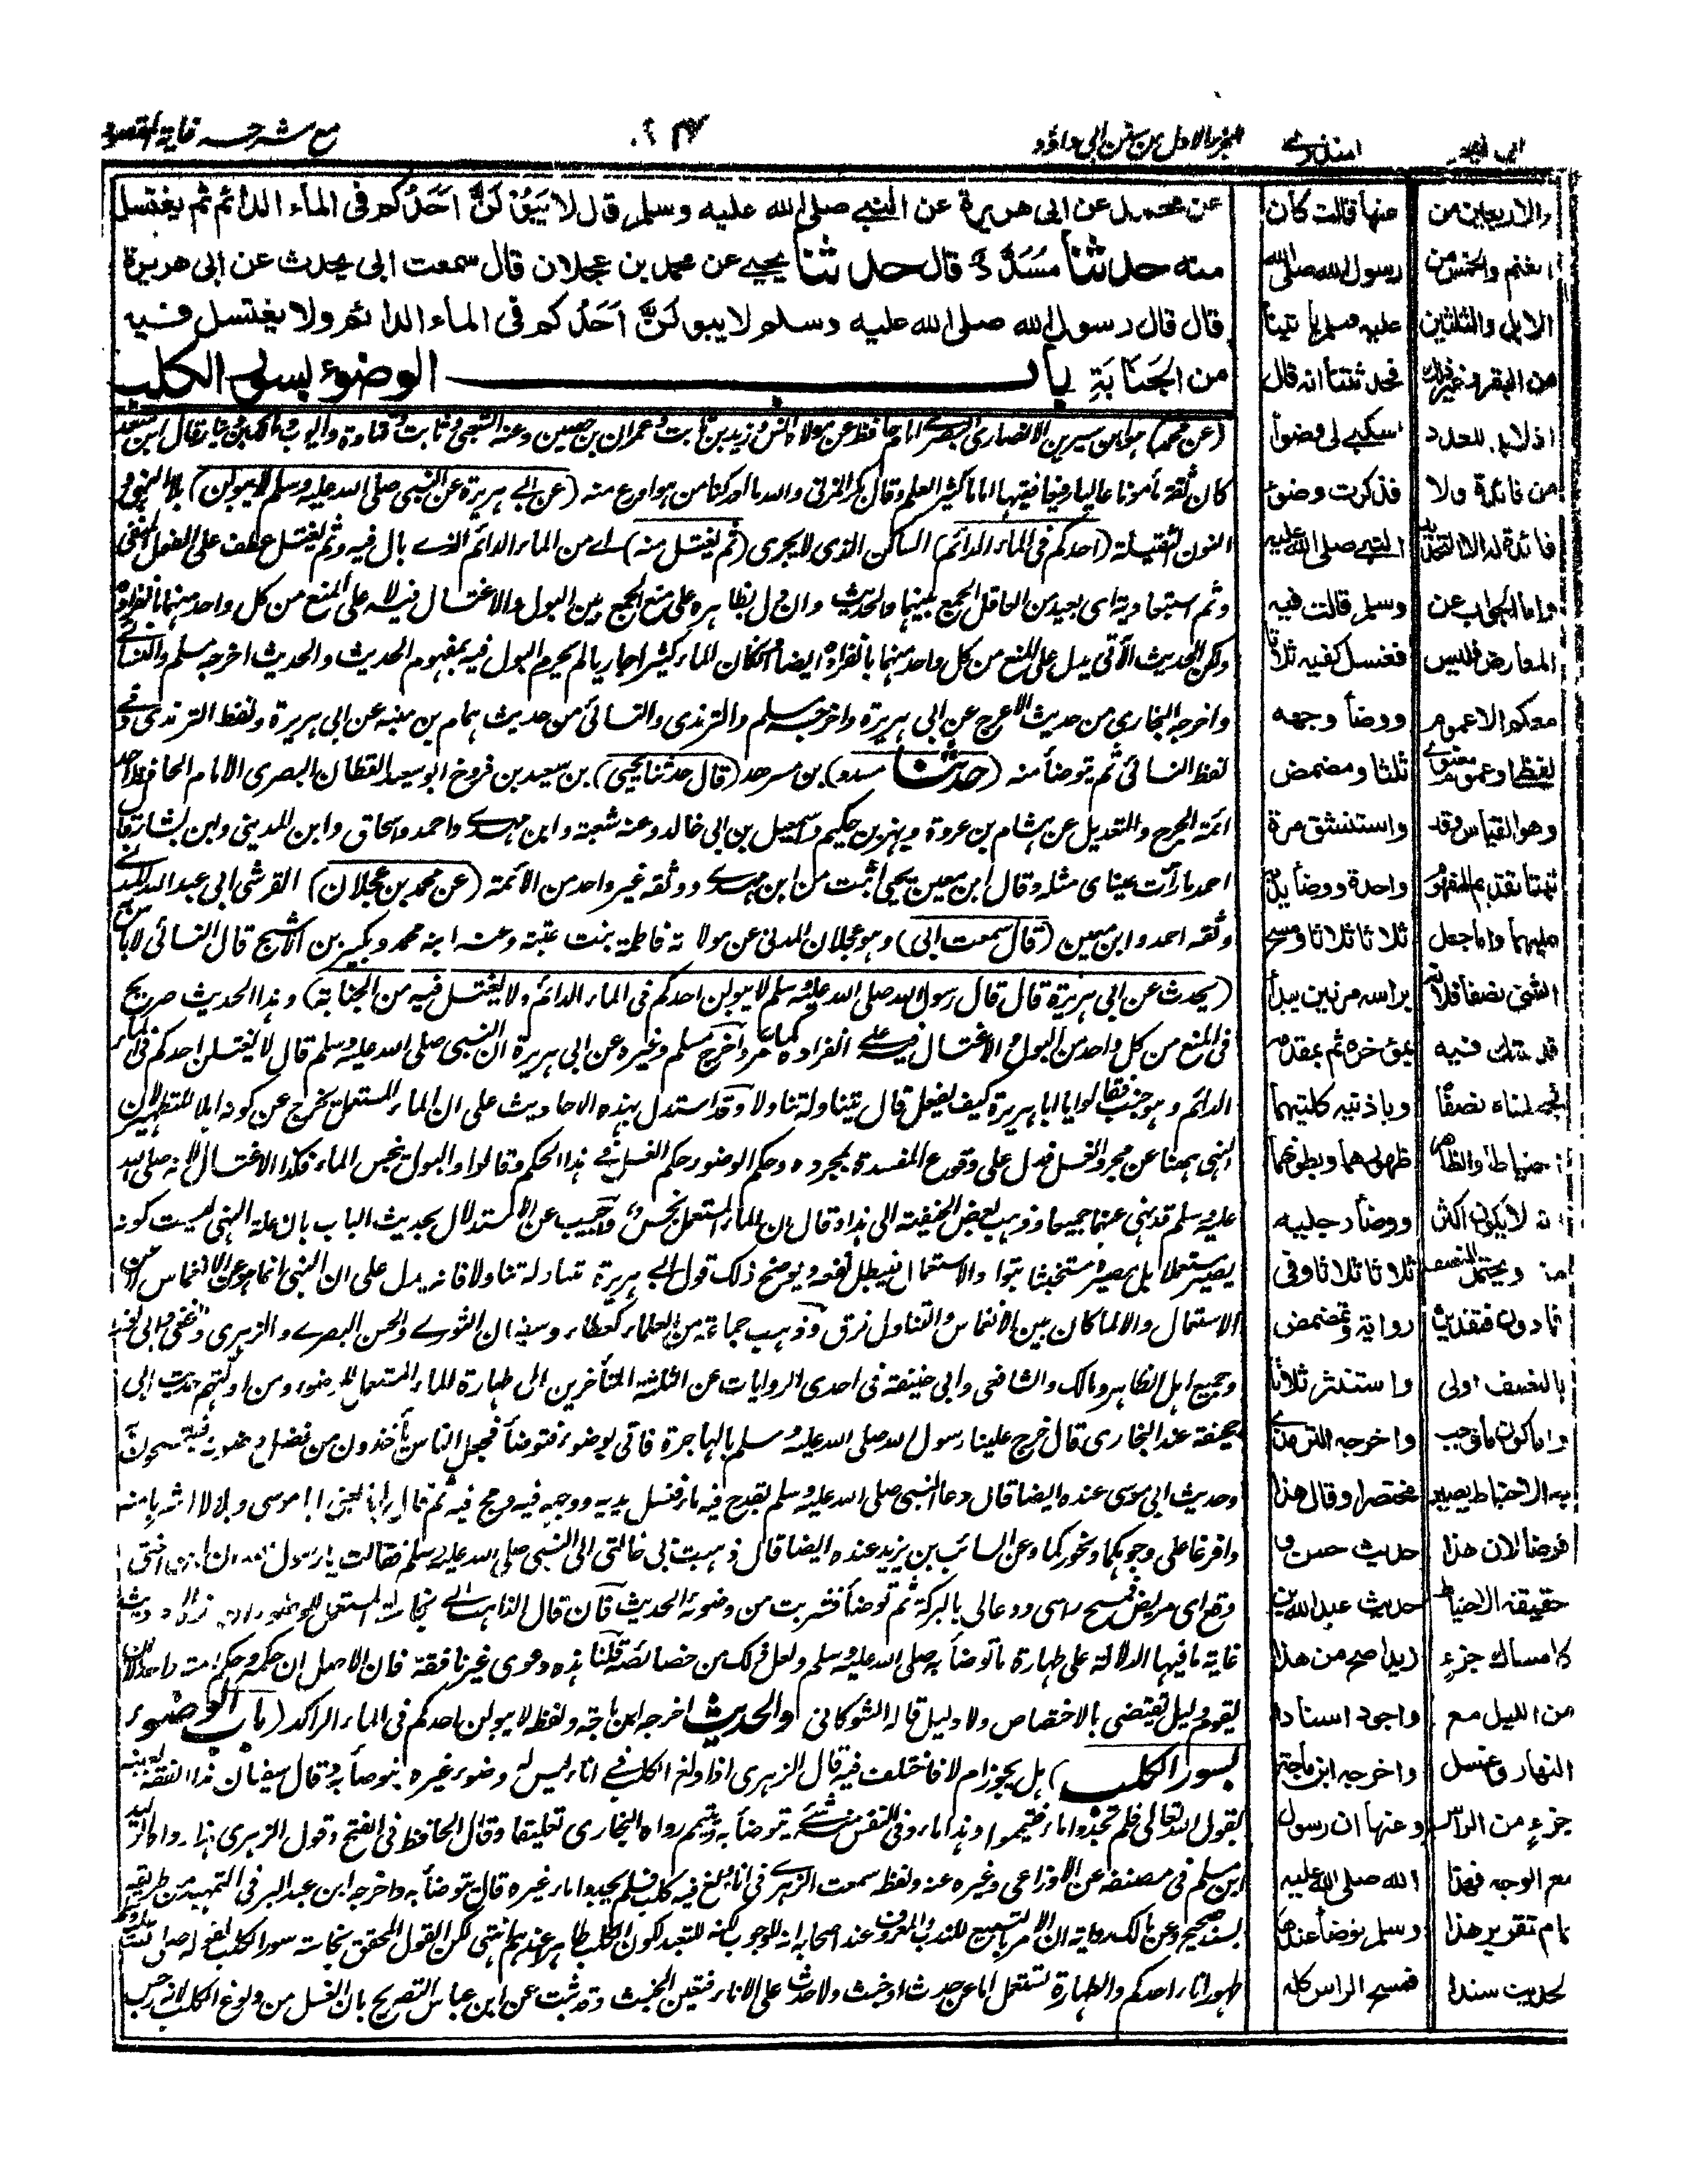 الجزء الاول من سنن ابى داؤد
مع شرحه غاية المقصود
عن محمد عن ابى هريرة عن النبي صلى الله عليه وسلم قال لا يَبُوْلَنَّ اَحَدُكم فى الماء الدائم ثم يغتسل
منه حدثنا مُسَدَّدٌ قال حدثنا يحيى عن محمد بن عجلان قال سمعت ابى يحدث عن ابى هريرة
قال قال رسول الله صلى الله عليه وسلم لا يبولَنَّ اَحَدُكم فى الماء الدائم ولا يغتسل فيه
من الجَنَابَةِ باب الوضوء بسور الكلب
(عن محمد) هو ابن سيرين الانصارى البصرى امام حافظ عن مولاه انس وزيد بن ثابت وعمران بن حصين وعنه الشعبى وثابت وقتادة وايوب قال ابن سعد
كان ثقة مأمونا عاليا رفيعا فقيها اماما كثير العلم وقال بكر المزنى والله ما ادركنا من هو اورع منه (عن ابى هريرة عن النبى صلى الله عليه وسلم لا يبولن)
النون الثقيلة (احدكم فى الماء الدائم) الساكن الذى لا يجرى (ثم يغتسل منه) اى من الماء الدائم الذى بال فيه وثم يغتسل عطف على الفعل المنفى
وثم استبعادية اى بعيد من العاقل الجمع بينهما والحديث وان دل بظاهره على منع الجمع بين البول والاغتسال فيه لا على المنع من كل واحد منهما بانفراده
ولكن الحديث الآتى يدل على المنع من كل واحد منهما بانفراده ايضا فان كان الماء كثيرا جاريا لم يحرم البول فيه بمفهوم الحديث والحديث اخرجه مسلم والنسائى
واخرجه البخارى من حديث الاعرج عن ابى هريرة واخرجه مسلم والترمذى والنسائى من حديث همام بن منبه عن ابى هريرة ولفظ الترمذى وفى
لفظ النسائى ثم يتوضأ منه (حدثنا مسدد) بن مسرهد (قال حدثنا يحيى) بن سعيد بن فروخ ابو سعيد القطان البصرى الامام الحافظ احد
ائمة الجرح والتعديل عن هشام بن عروة وبهز بن حكيم واسمعيل بن ابى خالد وعنه شعبة وابن مهدى واحمد واسحاق وابن المدينى وابن بشار قال
احمد ما رأت عيناى مثله وقال ابن معين يحيى اثبت من ابن مهدى ووثقه غير واحد من الائمة (عن محمد بن عجلان) القرشى ابى عبد الله المدنى
وثقه احمد وابن معين (قال سمعت ابى) وهو عجلان المدنى عن مولاته فاطمة بنت عتبة وعنه ابنه محمد وبكير بن الاشج قال النسائى لا باس به
(يحدث عن ابى هريرة قال قال رسول الله صلى الله عليه وسلم لا يبولن احدكم فى الماء الدائم ولا يغتسل فيه من الجنابة) وهذا الحديث صريح
فى المنع من كل واحد من البول والاغتسال فيه على انفراده كما مر واخرج مسلم وغيره عن ابى هريرة ان النبى صلى الله عليه وسلم قال لا يغتسلن احدكم فى الماء
الدائم وهو جنب فقالوا يا ابا هريرة كيف يفعل قال يتناوله تناولا وقد استدل بهذه الاحاديث على ان الماء المستعمل يخرج عن كونه اهلا للتطهير لان
النهى ههنا عن مجرد الغسل فدل على وقوع المفسدة بمجرده وحكم الوضوء حكم الغسل فى هذا الحكم وقالوا والبول ينجس الماء فكذا الاغتسال لانه صلى الله
عليه وسلم قد نهى عنهما جميعا وذهب بعض الحنفية الى هذا وقال ان الماء المستعمل نجس واجيب عن الاستدلال بحديث الباب بان علة النهى ليست كونه
يصير مستعملا بل مصيره مستخبثا بتوارد الاستعمال فيبطل نفعه ويوضح ذلك قول ابى هريرة يتناوله تناولا فانه يدل على ان النهى انما هو عن الانغماس لا عن
الاستعمال والا لما كان بين الانغماس والتناول فرق وذهب جماعة من العلماء كعطاء وسفيان الثورى والحسن البصرى والزهرى والنخعى وابى ثور
وجميع اهل الظاهر ومالك والشافعى وابى حنيفة فى احدى الروايات عن الثلثة المتأخرين الى طهارة الماء المستعمل للوضوء ومن ادلتهم حديث ابى
جحيفة عند البخارى قال خرج علينا رسول الله صلى الله عليه وسلم بالهاجرة فاتى بوضوء فتوضأ فجعل الناس يأخذون من فضل وضوئه فيتمسحون به
وحديث ابى موسى عنده ايضا قال دعا النبى صلى الله عليه وسلم بقدح فيه ماء فغسل يديه ووجهه فيه ومج فيه ثم قال لهما يعنى ابا موسى وبلالا اشربا منه
وافرغا على وجوهكما ونحوركما وعن السائب بن يزيد عنده ايضا قال ذهبت بى خالتى الى النبى صلى الله عليه وسلم فقالت يا رسول الله ان ابن اختى
وقع اى مريض فمسح راسى ودعا لى بالبركة ثم توضأ فشربت من وضوئه الحديث فان قال الذاهب الى نجاسة المستعمل للوضوء ان هذه الاحاديث
غاية ما فيها الدلالة على طهارة ما توضأ به صلى الله عليه وسلم ولعل ذلك من خصائصه قلنا هذه دعوى غير نافقة فان الاصل ان حكمه وحكم امته واحد الا ان
يقوم دليل يقتضى بالاختصاص ولا دليل قاله الشوكانى والحديث اخرجه ابن ماجة ولفظه لا يبولن احدكم فى الماء الراكد (باب الوضوء
بسور الكلب) هل يجوز ام لا فاختلف فيه قال الزهرى اذا ولغ الكلب فى اناء ليس له وضوء غيره يتوضأ به وقال سفيان هذا الفقه بعينه
لقول الله تعالى فلم تجدوا ماء فتيمموا وهذا ماء وفى النفس منه شئ يتوضأ به ويتيمم رواه البخارى تعليقا وقال الحافظ فى الفتح وقول الزهرى هذا رواه الوليد
ابن مسلم فى مصنفه عن الاوزاعى وغيره عنه ولفظه سمعت الزهرى فى اناء ولغ فيه كلب فلم يجدوا ماء غيره قال يتوضأ به واخرجه ابن عبد البر فى التمهيد من طريقه
بسند صحيح وعن مالك رواية ان الامر بالتسبيع للندب والمعروف عند اصحابه انه للوجوب لكنه للتعبد لكون الكلب طاهرا عندهم انتهى لكن القول المحقق نجاسة سور الكلب لقوله صلى الله عليه وسلم
طهور اناء احدكم والطهارة تستعمل اما عن حدث او خبث ولا حدث على الاناء فتعين الخبث وقد ثبت عن ابن عباس التصريح بان الغسل من ولوغ الكلب لانه رجس
عنها قالت كان
رسول الله صلى الله
عليه وسلم ياتينا
فحدثتنا انه قال
اسكبى لى وضوأ
فذكرت وضوء
النبى صلى الله عليه
وسلم قالت فيه
فغسل كفيه ثلاثا
ووضأ وجهه
ثلثا ومضمض
واستنشق مرة
واحدة ووضأ يديه
ثلاثا ثلاثا ومسح
براسه مرتين يبدأ
بمؤخره ثم بمقدمه
وباذنيه كلتيهما
ظهورهما وبطونهما
ووضأ رجليه
ثلاثا ثلاثا وفى
رواية وتمضمض
واستنثر ثلاثا
واخرجه الترمذى
مختصرا وقال هذا
حديث حسن و
حديث عبد الله بن
زيد اصح من هذا
واجود اسنادا
واخرجه ابن ماجة
وعنها ان رسول
الله صلى الله عليه
وسلم توضأ عندها
فمسح الراس كله
والاربعين من
الغنم والخمس من
الابل والثلثين
من البقر وغير ذلك
اذ لابد للعدد
من فائدة ولا
فائدة له الا التحديد
واما الجواب عن
المعارض فليس
معكم الا عموم
لفظا وعموم معنوى
وهو القياس وقد
عليهما واما جعل
قد يقال فيه
لا يكون اكثر
بالنصف اولى
به الاحتياط يصير
فرضا لان هذا
حقيقة الاحتياط
كامساك جزء
من الليل مع
النهار وغسل
جزء من الراس
مع الوجه فهذا
تمام تقرير هذا
لحديث سندا